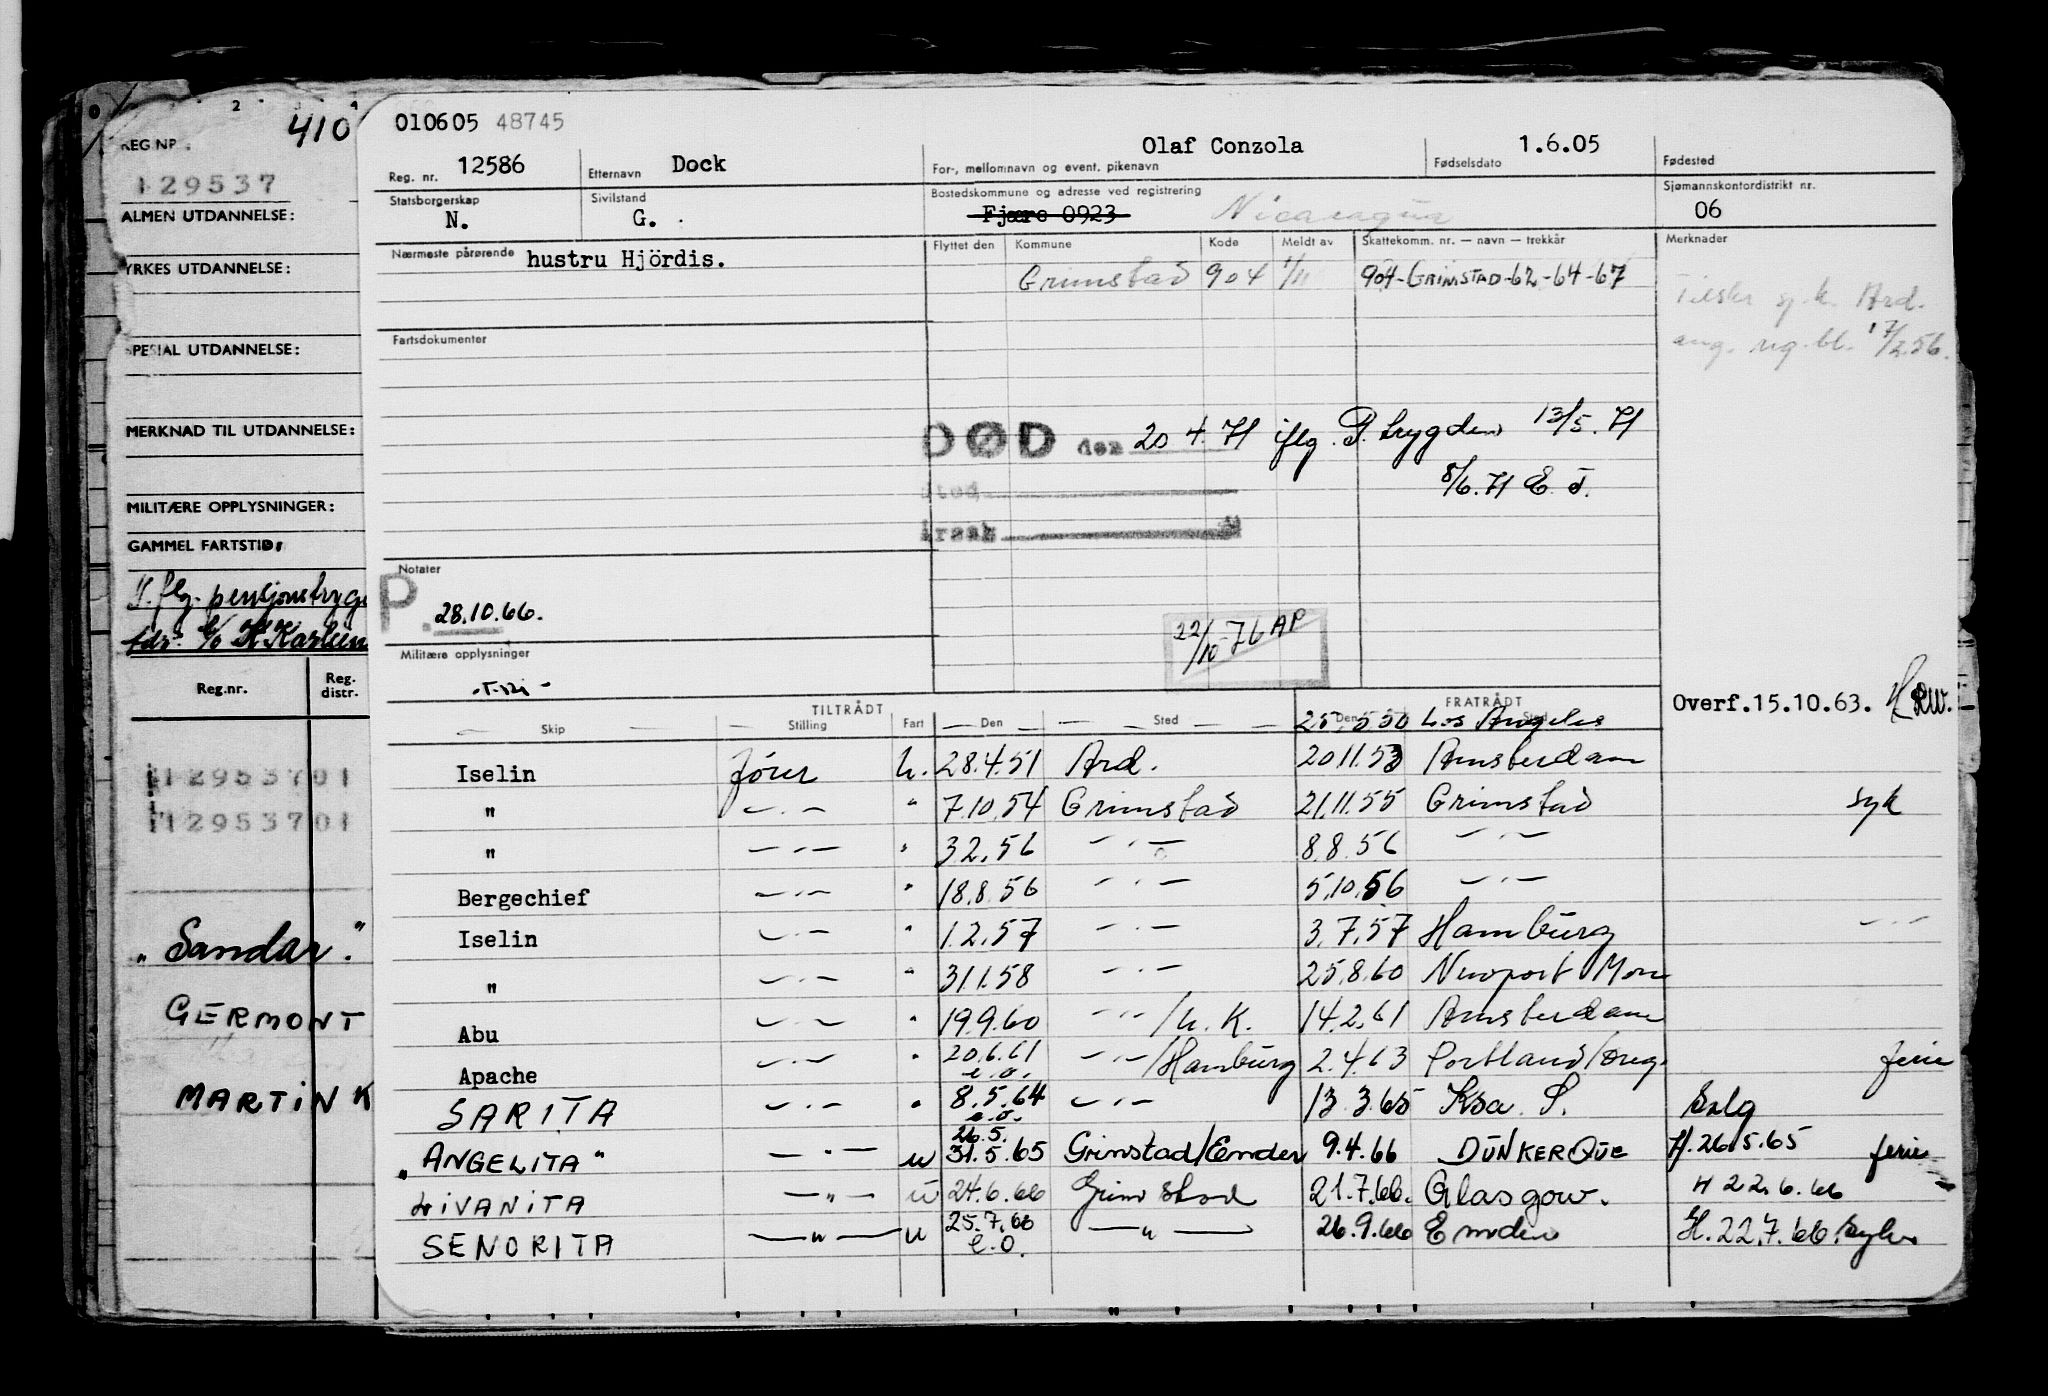 2 3 4
410
REG NR.
129537
ALMEN UTDANNELSE:
YRKES UTDANNELSE:
SPESIAL UTDANNELSE:
MERKNAD TIL UTDANNELSE:
MILITÆRE OPPLYSNINGER:
GAMMEL FARTSTID:
Reg.nr. Reg. distr.
12953701
12953701
"Sandar".
GERMONT
MARTIN K
010605 48745
Reg. nr. 12586 Etternavn Dock For-, mellomnavn og event. pikenavn Olaf Conzola Fødselsdato 1.6.05 Fødested
Statsborgerskap N. Sivilstand G. Bostedskommune og adresse ved registrering Fjære 0923 Nicaragua Sjømannskontordistrikt nr. 06
Nærmeste pårørende hustru Hjördis. Flyttet den Kommune Kode Meldt av Skattekomm. nr. — navn — trekkår Merknader
Grimstad 904 1/11 904-GRIMSTAD-62-64-67
Tilskr sj.k. Ard.
ang. reg.bl. 17/2.56.
Fartsdokumenter
DØD den 20 4.71 iflg. P. trygden 13/5.71
8/6.71 E.J.
Sted
Årsak
Notater
P. 28.10.66.
22/10-76 AP
Militære opplysninger
TILTRÅDT FRATRÅDT Overf.15.10.63. HRW.
Skip Stilling Fart Den Sted Den Sted
25.5.50 Los Angeles
Iselin fører u. 28.4.51 Ard. 20.11.53 Amsterdam
" —.— " 7.10.54 Grimstad 21.11.55 Grimstad syk
" —.— " 3.2.56 —.— 8.8.56 —.—
Bergechief —.— " 18.8.56 —.— 5.10.56 —.—
Iselin —.— " 1.2.57 —.— 3.7.57 Hamburg —.—
" —.— " 31.1.58 —.— 25.8.60 Newport Mon
Abu —.— " 19.9.60 —.—/U.K. 14.2.61 Amsterdam
Apache —.— " 20.6.61 e.o. —.—/Hamburg 2.4.63 Portland/Oreg. ferie
SARITA —.— " 8.5.64 e.o. —.— 13.3.65 Ksa. S. Salg
"ANGELITA" —.— u 26.5. 31.5.65 Grimstad/Emden 9.4.66 DUNKERQUE H.26.5.65 ferie
VIVANITA —"— u 24.6.66 Grimstad 21.7.66. Glasgow. H 22.6.66
SENORITA —"— u 25.7.66 e.o. —"— 26.9.66 Emden H.22.7.66